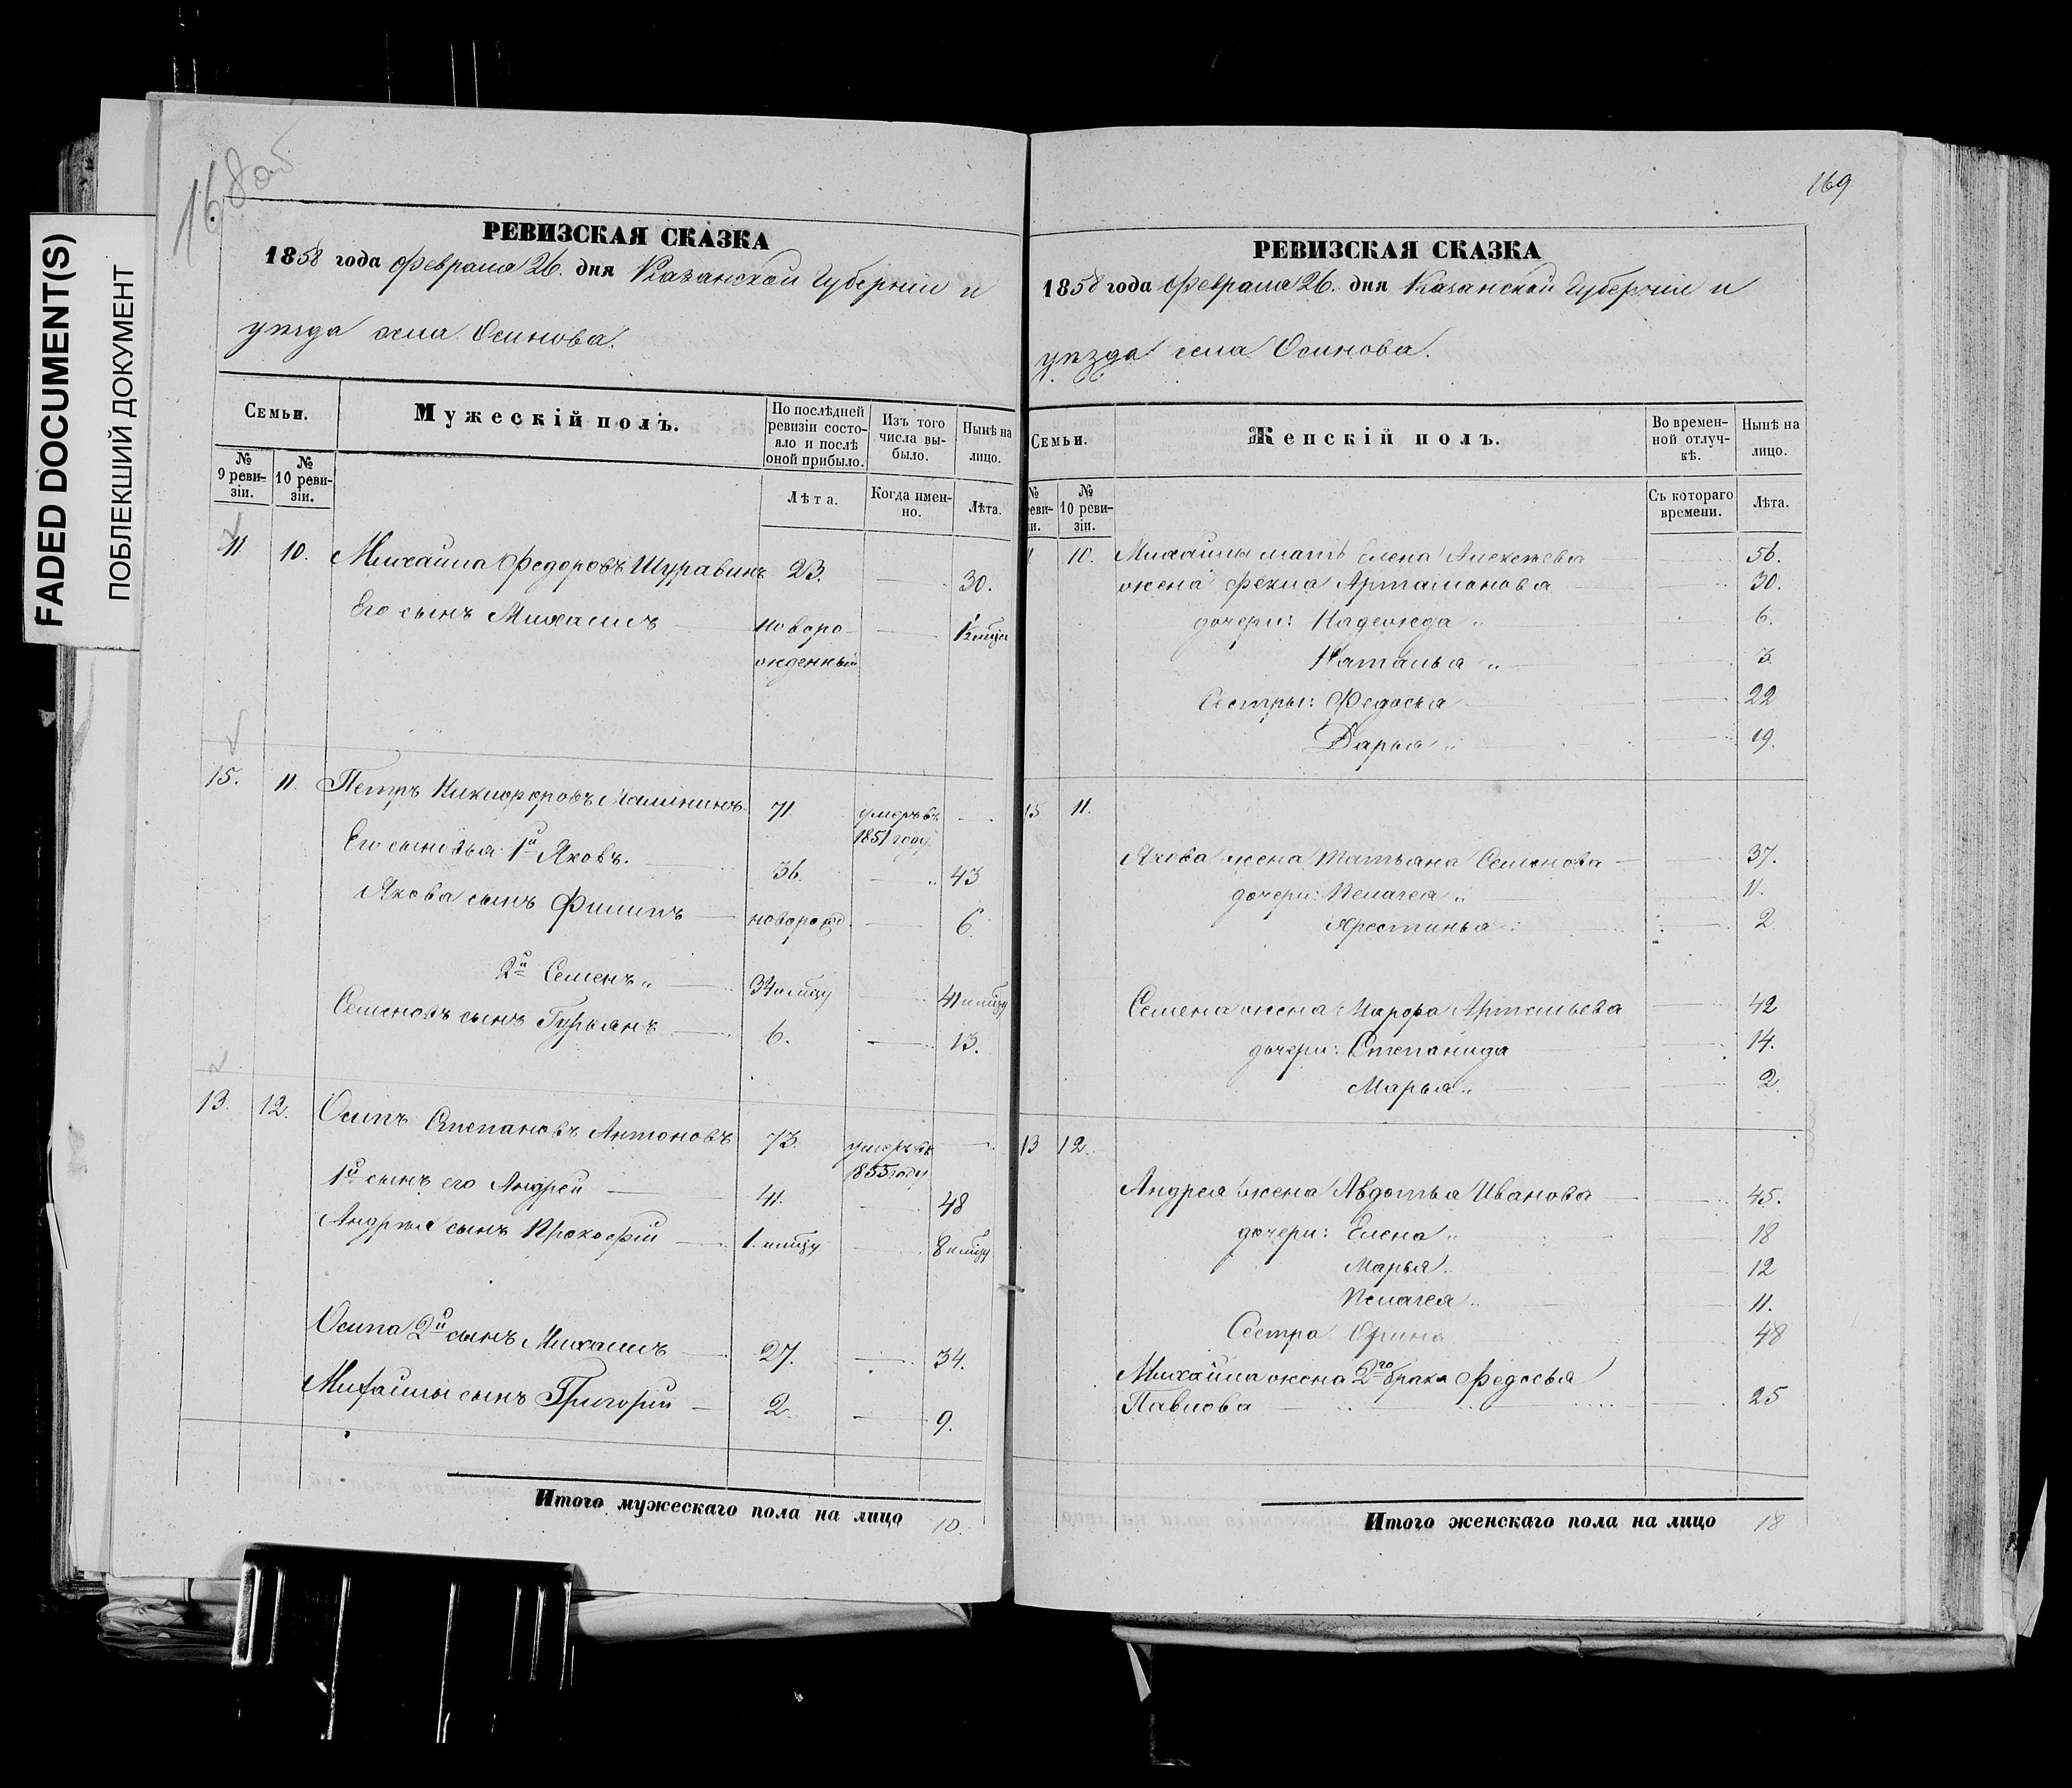 FADED DOCUMENT(S)
ПОБЛЕКШИЙ ДОКУМЕНТ
168об
РЕВИЗСКАЯ СКАЗКА
1858 года Февраля 26. дня Казанской Губернiи и
уѣзда села Осинова.
Семьи.
Мужескій полъ.
По послѣдней ревизіи состояло и послѣ оной прибыло.
Изъ того числа выбыло.
Нынѣ на лицо.
№ 9 ревизіи.
№ 10 ревизіи.
Лѣта.
Когда именно.
Лѣта.
11. 10. Михайла Федоровъ Шуравинъ 23. 30.
Его сынъ Михаилъ новоро-
жденный
15. 11. Петръ Никифоровъ Малининъ 71. умеръ въ
1851 году.
Его сыновья 1й Яковъ. 36. 43
Якова сынъ Филипъ новорожд. 6.
2й Семенъ „ 34 41
Семеновъ сынъ Гурьянъ 6. 13.
13. 12. Осипъ Степановъ Антоновъ 73. умеръ въ
1855 году
1й сынъ его Андрей 41. 48
Андрея сынъ Прокофій 1. 8
Осипа 2й сынъ Михаилъ 27. 34.
Михайлы сынъ Григорій 2. 9.
Итого мужескаго пола на лицо 10.
169
РЕВИЗСКАЯ СКАЗКА
1858 года Февраля 26. дня Казанской Губерніи и
уѣзда села Осинова.
Семьи.
Женскій полъ.
Во временной отлучкѣ.
Нынѣ на лицо.
№
№ 10 ревизіи.
Съ котораго времени.
Лѣта.
10. Михайлы мать Елена Алексѣева 56.
жена Фекла Артамонова 30.
дочери: Надежда „ 6.
Наталья „ 3.
Сестры: Федосья 22
Дарья „ 19.
15 11.
Якова жена Татьяна Семенова 37.
дочери: Пелагея „ 11.
Хрестинья 2
Семена жена Марфа Артемьева 42
дочери: Степанида 14.
Марья „ 2
13 12.
Андрея жена Авдотья Иванова 45.
дочери: Елена „ 18
Марья 12
Пелагея „ 11.
Сестра Орина 48
Михайла жена 2го брака Федосья
Павлова 25
Итого женскаго пола на лицо 18